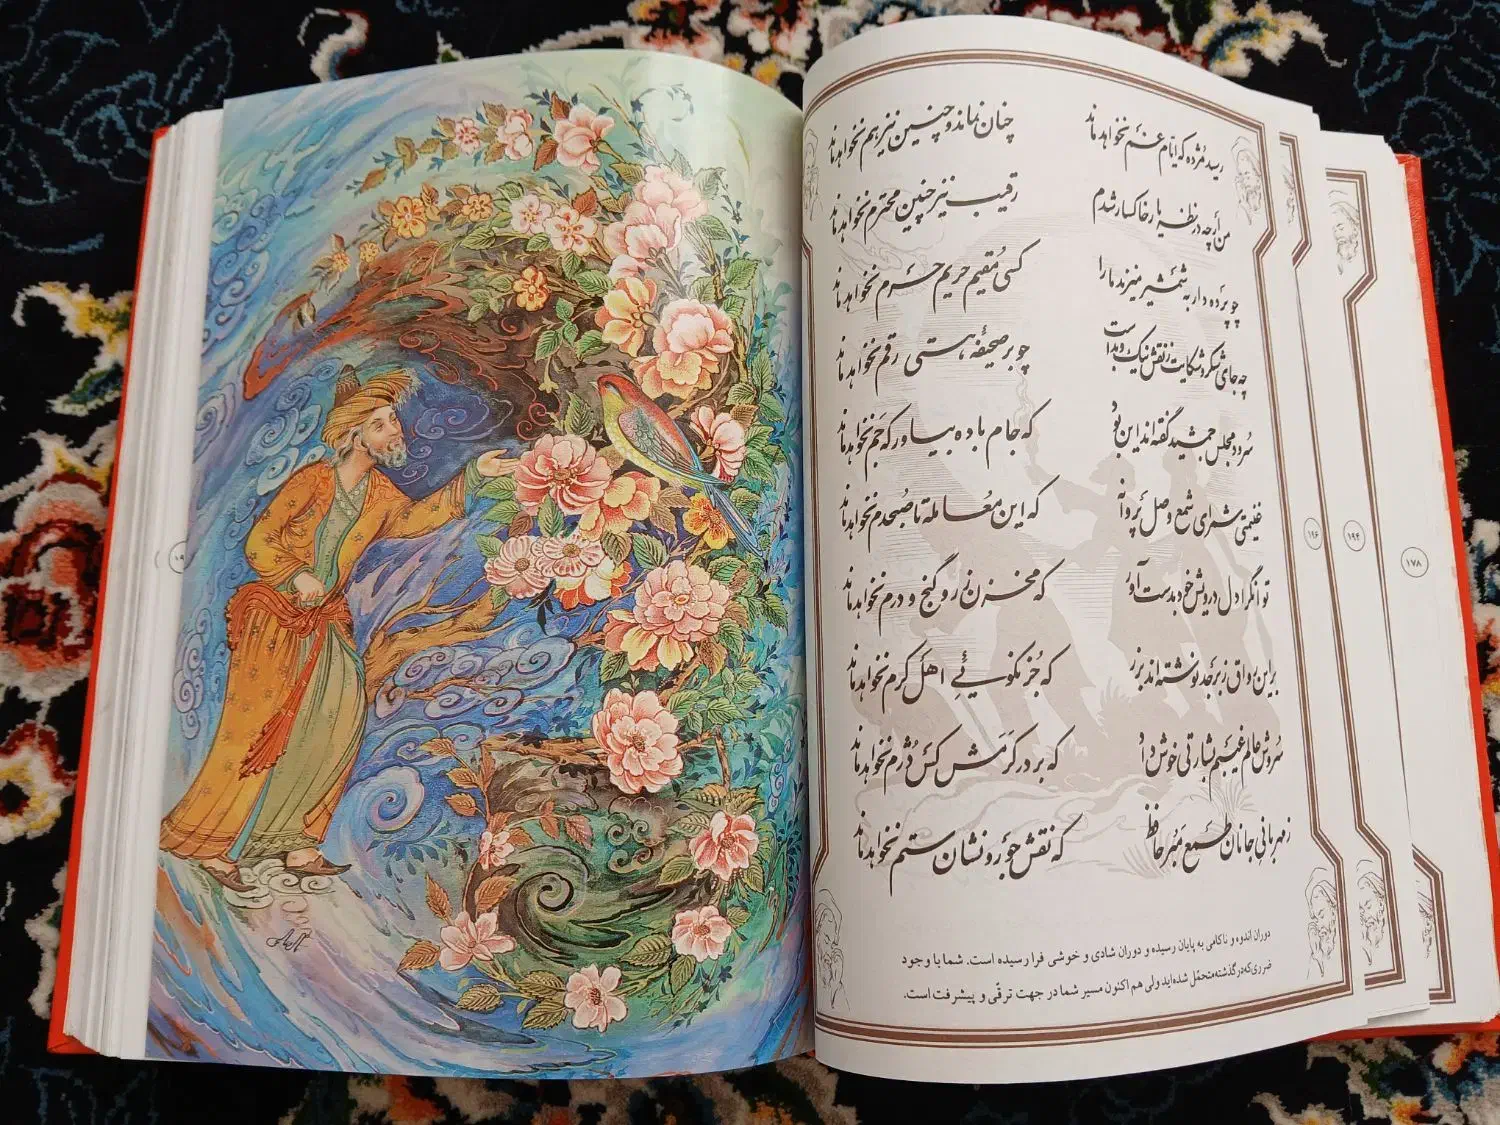 رسید مژده که ایّام غم نخواهد ماند چنان نماند و چنین نیز هم نخواهد ماند
من ار چه در نظر یار خاکسار شدم رقیب نیز چنین محترم نخواهد ماند
چو پرده دار به شمشیر میزند ما را کسی مُقیم حریم حَرَم نخواهد ماند
چه جای شکر و شکایت ز نقش نیک و بد است چو بر صحیفهٔ هستی رقم نخواهد ماند
سُرود مجلس جمشید گفته‌اند این بُود که جام باده بیاور که جَم نخواهد ماند
غنیمتی شمر ای شمع وصل پَروانه که این مُعامله تا صُبحدم نخواهد ماند
توانگرا دل درویش خود بدست آور که مخزن زر و گنج و درم نخواهد ماند
بر این رواق زبرجد نوشته‌اند بزر که جُز نکوئی اهل کرم نخواهد ماند
سُروش عالم غیبم بشارتی خوش داد که بر در کرمش کس دُژم نخواهد ماند
ز مهربانی جانان طَمَع مَبُر حافظ که نقش جور و نشان ستم نخواهد ماند
دوران اندوه و ناکامی به پایان رسیده و دوران شادی و خوشی فرا رسیده است. شما با وجود
ضرری که در گذشته متحمّل شده‌اید ولی هم اکنون مسیر شما در جهت ترقّی و پیشرفت است.
۱۹۶
۱۹۴
۱۷۸